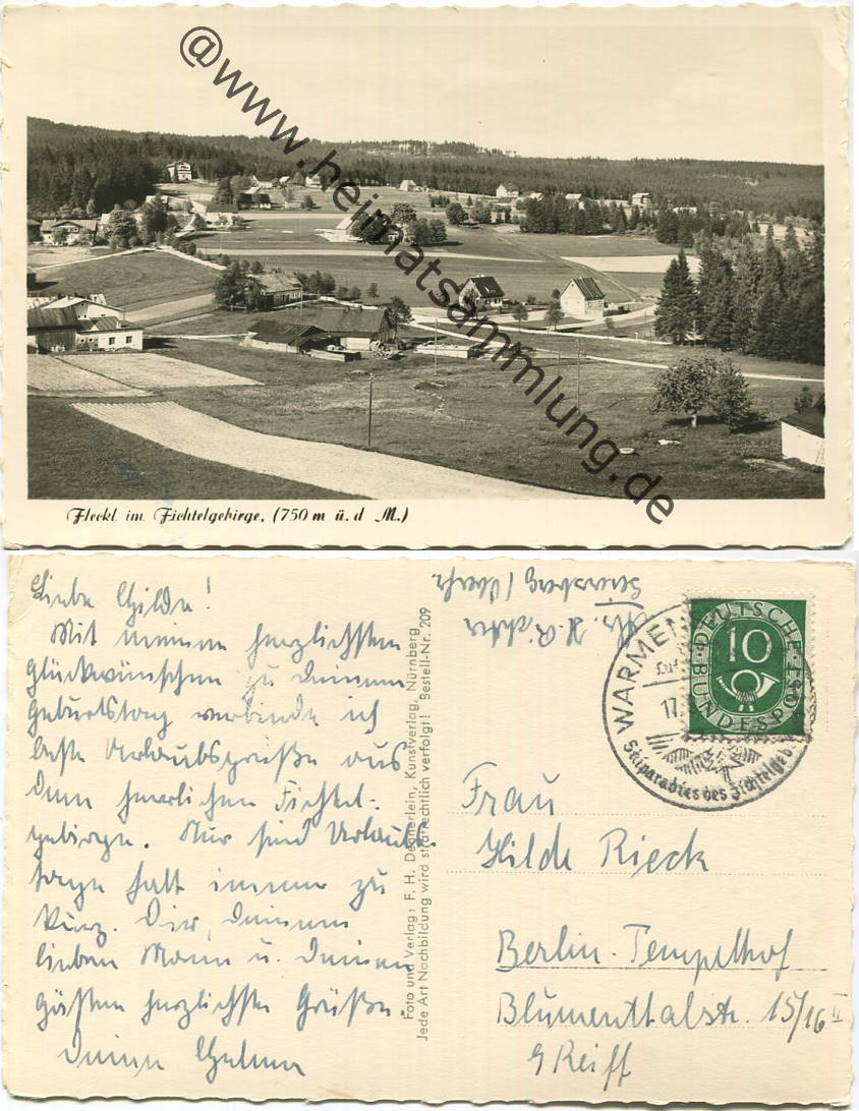 @www.heimatsammlung.de
Fleckl im Fichtelgebirge, (750 m ü. d M.)
Liebe Hilde!
Mit meinen herzlichsten
Glückwünschen zu Deinem
Geburtstag verbinde ich
beste Urlaubsgrüße aus
dem herrlichen Fichtel-
gebirge. Nur sind Urlaubs-
tage halt immer zu
kurz. Dir, Deinem
lieben Mann u. Deinen
Gästen herzlichste Grüße
Deine
Foto und Verlag: F. H. Degnerlein, Kunstverlag, Nürnberg
Jede Art Nachbildung wird strafrechtlich verfolgt! Bestell-Nr. 209
WARMEN
17.
Skiparadies des Fichtelgeb
DEUTSCHE
BUNDESPOST
10
Frau
Hilde Rieck
Berlin-Tempelhof
Blumenthalstr. 15/16 II